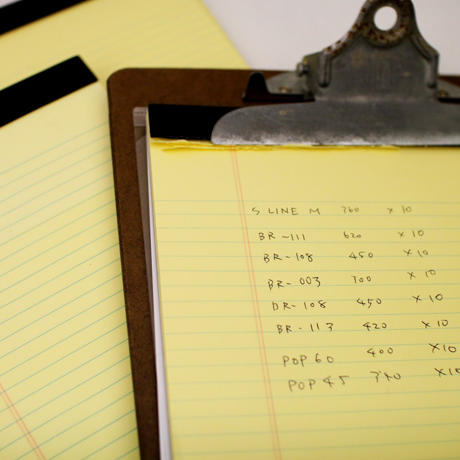 S LINE M 260 × 10
BR-111 620 × 10
BR-108 450 × 10
BR-003 700 × 10
DR-108 450 × 10
BR-113 420 × 10
POP 60 400 ×10
POP 45 340 ×10